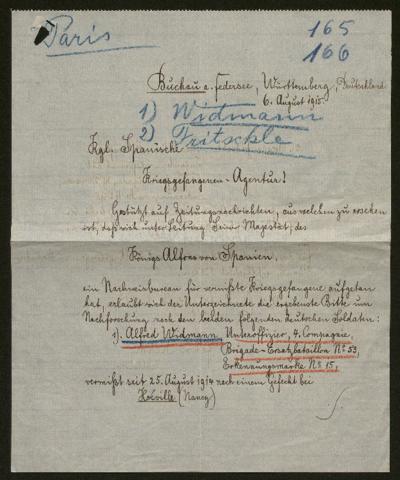 Paris
165
166
Buchau a. Federsee, Württemberg, Deutschland
6. August 1915.
1) Widmann
2) Fritschle
Kgl. Spanische
Kriegsgefangenen-Agentur!
Gestützt auf Zeitungsnachrichten, aus welchen zu ersehen
ist, daß sich unter Leitung Seiner Majestät, des
Königs Alfons von Spanien,
ein Nachweisbureau für vermißte Kriegsgefangene aufgetan
hat, erlaubt sich der Unterzeichnete die ergebenste Bitte um
Nachforschung nach den beiden folgenden deutschen Soldaten:
1) Alfred Widmann Unteroffizier, 4. Compagnie,
Brigade-Ersatzbataillon No 53,
Erkennungsmarke No 15,
vermißt seit 25. August 1914 nach einem Gefecht bei
(Nancy)